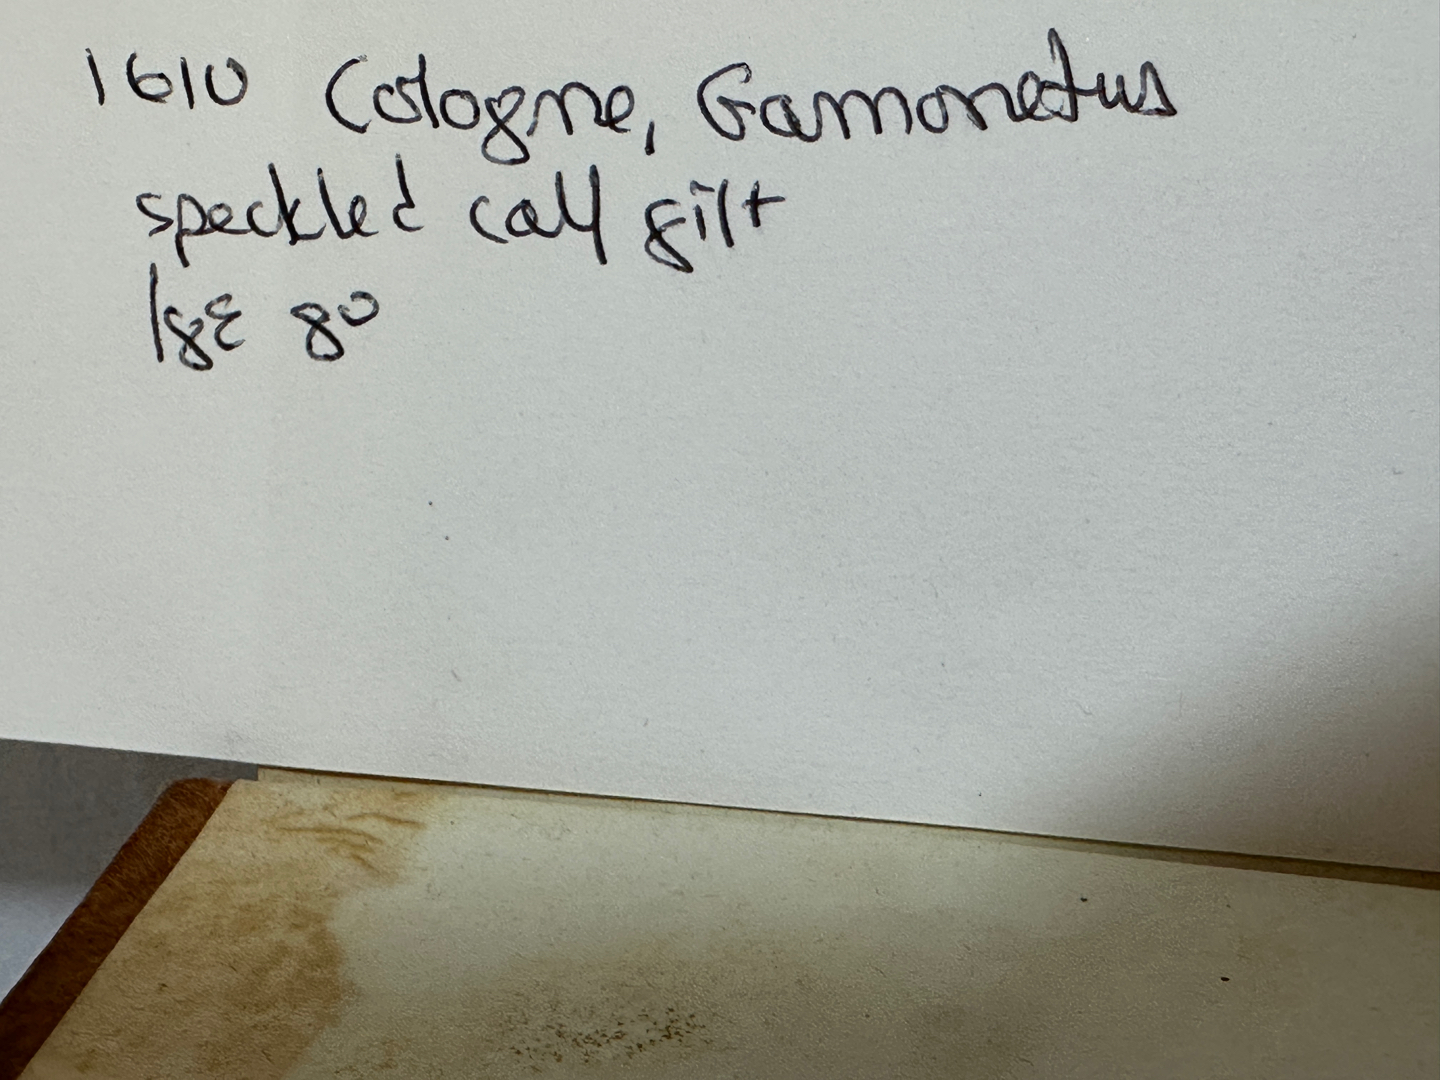 1610 Cologne, Gamonetus
speckled calf gilt
lge 80